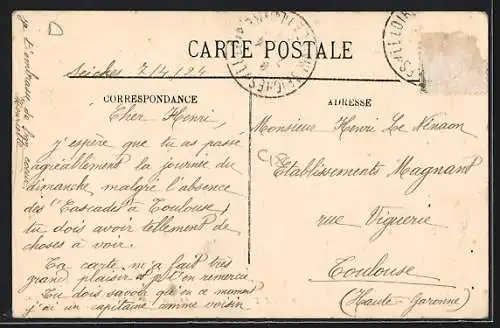 CARTE POSTALE
Seiches 7/4/24
CORRESPONDANCE
ADRESSE
Cher Henri,
j'espère que tu as passé
agréablement la journée du
dimanche malgré l'absence
des "Cascades à Toulouse",
tu dois avoir tellement de
choses à voir.
Ta carte m'a fait très
grand plaisir et t'en remercie
Tu dois savoir que en ce moment
j'ai un capitaine comme voisin
je t'embrasse de
Monsieur Henri Le Nénaon
Etablissements Magnant
rue Viguerie
Toulouse
(Haute-Garonne)